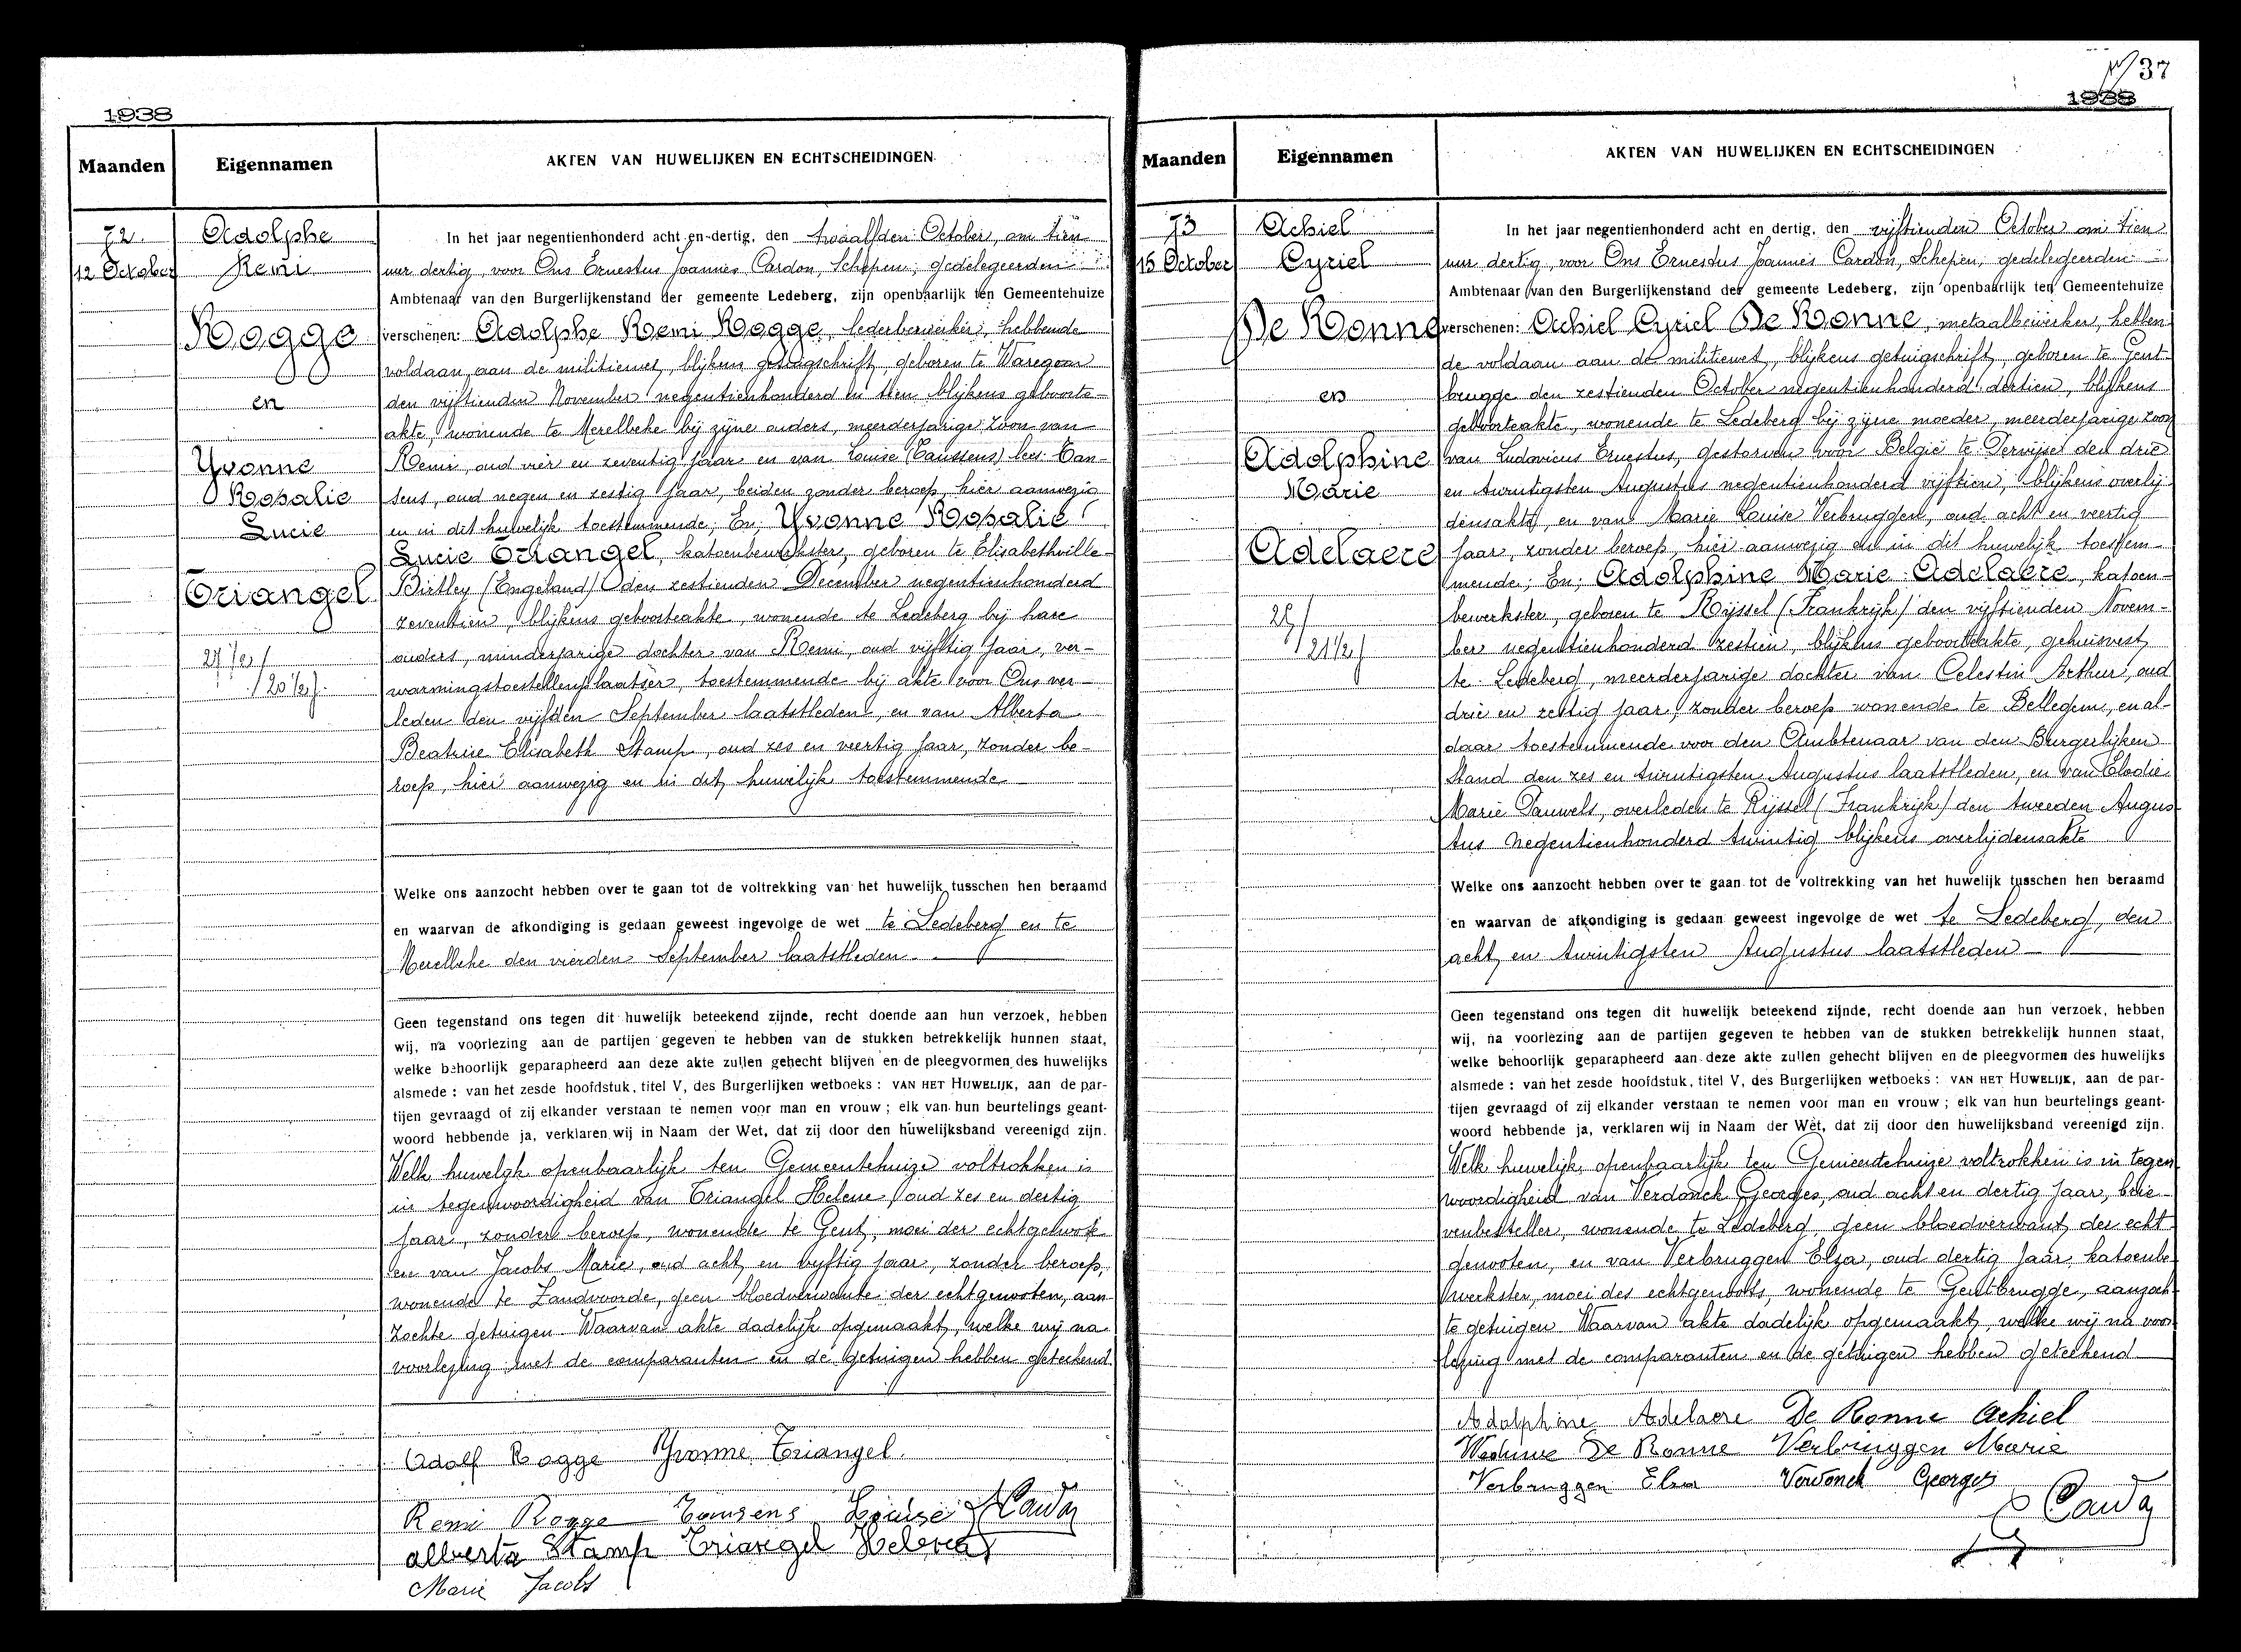 1938
Maanden
Eigennamen
AKTEN VAN HUWELIJKEN EN ECHTSCHEIDINGEN
72.
12 October
Adolphe
Remi
Rogge
en
Yvonne
Rosalie
Lucie
Triangel
27 1/2 /
/ 20 1/2 j.
In het jaar negentienhonderd acht en dertig, den twaalfden October, om tien
uur dertig, voor Ons Ernestus Joannes Cardon, Schepen, gedelegeerden
Ambtenaar van den Burgerlijkenstand der gemeente Ledeberg, zijn openbaarlijk ten Gemeentehuize
verschenen: Adolphe Remi Rogge, lederbewerker, hebbende
voldaan aan de militiewet, blijkens getuigschrift, geboren te Waregem
den vijftienden November negentienhonderd en tien blijkens geboorte-
akte, wonende te Merelbeke bij zijne ouders, meerderjarige zoon van
Remi, oud vier en zeventig jaar en van Louise (Taussens) lees: Tan-
sens, oud negen en zestig jaar, beiden zonder beroep, hier aanwezig
en in dit huwelijk toestemmende; En; Yvonne Rosalie
Lucie Triangel, katoenbewerkster, geboren te Elisabethville-
Birtley (Engeland) den zestienden December negentienhonderd
zeventien, blijkens geboorteakte, wonende te Ledeberg bij hare
ouders, minderjarige dochter van Remi, oud vijftig jaar, ver-
warmingstoestellenplaatser, toestemmende bij akte voor Ons ver-
leden den vijfden September laatstleden, en van Alberta
Beatrice Elisabeth Stamp, oud zes en veertig jaar, zonder be-
roep, hier aanwezig en in dit huwelijk toestemmende
Welke ons aanzocht hebben over te gaan tot de voltrekking van het huwelijk tusschen hen beraamd
en waarvan de afkondiging is gedaan geweest ingevolge de wet te Ledeberg en te
Merelbeke den vierden September laatstleden
Geen tegenstand ons tegen dit huwelijk beteekend zijnde, recht doende aan hun verzoek, hebben
wij, na voorlezing aan de partijen gegeven te hebben van de stukken betrekkelijk hunnen staat,
welke behoorlijk geparapheerd aan deze akte zullen gehecht blijven en de pleegvormen des huwelijks
alsmede : van het zesde hoofdstuk, titel V, des Burgerlijken wetboeks : VAN HET HUWELIJK, aan de par-
tijen gevraagd of zij elkander verstaan te nemen voor man en vrouw ; elk van hun beurtelings geant-
woord hebbende ja, verklaren wij in Naam der Wet, dat zij door den huwelijksband vereenigd zijn.
Welk huwelijk openbaarlijk ten Gemeentehuize voltrokken is
in tegenwoordigheid van Triangel Helene, oud zes en dertig
jaar, zonder beroep, wonende te Gent, moei der echtgenoote
en van Jacobs Marie, oud acht en vyftig jaar, zonder beroep,
wonende te Zandvoorde, geen bloedverwante der echtgenooten, aan-
zochte getuigen Waarvan akte dadelijk opgemaakt, welke wij na
voorlezing met de comparanten en de getuigen hebben geteekend
Adolf Rogge Yvonne Triangel.
Remi Rogge Tansens Louise Cardon
Alberta Stamp Triangel Helene
Marie Jacobs
37
1938
Maanden
Eigennamen
AKTEN VAN HUWELIJKEN EN ECHTSCHEIDINGEN
73
15 October
Achiel
Cyriel
De Ronne
en
Adolphine
Marie
Adelaere
25 /
/ 21 1/2 j
In het jaar negentienhonderd acht en dertig, den vijftienden October om tien
uur dertig, voor Ons Ernestus Joannes Cardon, Schepen, gedelegeerden
Ambtenaar van den Burgerlijkenstand der gemeente Ledeberg, zijn openbaarlijk ten Gemeentehuize
verschenen: Achiel Cyriel De Ronne, metaalbewerker, hebben-
de voldaan aan de militiewet, blijkens getuigschrift, geboren te Gent-
brugge den zestienden October negentienhonderd dertien, blijkens
geboorteakte, wonende te Ledeberg bij zijne moeder, meerderjarige zoon
van Ludovicus Ernestus, gestorven voor België te Pervijse den drie
en twintigsten Augustus negentienhonderd vijftien, blijkens overlij-
densakte, en van Marie Louise Verbruggen, oud acht en veertig
jaar, zonder beroep, hier aanwezig en in dit huwelijk toestem-
mende; En; Adolphine Marie Adelaere, katoen-
bewerkster, geboren te Rijssel (Frankrijk) den vijftienden Novem-
ber negentienhonderd zestien, blijkens geboorteakte, gehuisvest
te Ledeberg, meerderjarige dochter van Celestin Arthur, oud
drie en zestig jaar, zonder beroep wonende te Bellegem, en al-
daar toestemmende voor den Ambtenaar van den Burgerlijken
Stand den zes en twintigsten Augustus laatstleden, en van Elodie
Marie Pauwels, overleden te Rijssel (Frankrijk) den tweeden Augus-
tus negentienhonderd twintig blijkens overlijdensakte
Welke ons aanzocht hebben over te gaan tot de voltrekking van het huwelijk tusschen hen beraamd
en waarvan de afkondiging is gedaan geweest ingevolge de wet te Ledeberg, den
acht en twintigsten Augustus laatstleden
Geen tegenstand ons tegen dit huwelijk beteekend zijnde, recht doende aan hun verzoek, hebben
wij, na voorlezing aan de partijen gegeven te hebben van de stukken betrekkelijk hunnen staat,
welke behoorlijk geparapheerd aan deze akte zullen gehecht blijven en de pleegvormen des huwelijks
alsmede : van het zesde hoofdstuk, titel V, des Burgerlijken wetboeks : VAN HET HUWELIJK, aan de par-
tijen gevraagd of zij elkander verstaan te nemen voor man en vrouw ; elk van hun beurtelings geant-
woord hebbende ja, verklaren wij in Naam der Wet, dat zij door den huwelijksband vereenigd zijn.
Welk huwelijk openbaarlijk ten Gemeentehuize voltrokken is in tegen
woordigheid van Verdonck Georges, oud acht en dertig jaar, brie-
venbesteller, wonende te Ledeberg, geen bloedverwant der echt-
genooten, en van Verbruggen Elza, oud dertig jaar, katoenbe
werkster, moei des echtgenoots, wonende te Gentbrugge, aanzoch-
te getuigen Waarvan akte dadelijk opgemaakt, welke wij na voor
lezing met de comparanten en de getuigen hebben geteekend
Adolphine Adelaere De Ronne Achiel
Weduwe De Ronne Verbruggen Marie
Verbruggen Elza Verdonck Georges
Cardon